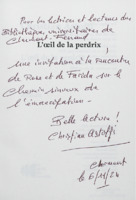 Pour les lectrices et lecteurs des
Bibliothèques universitaires de
Clermont-Ferrand
L'œil de la perdrix
une invitation à la rencontre
de Rose et de Farida sur le
Chemin sinueux de
l'émancipation -
Belle lecture !
Christian Astolfi
Clermont
le 6/11/24